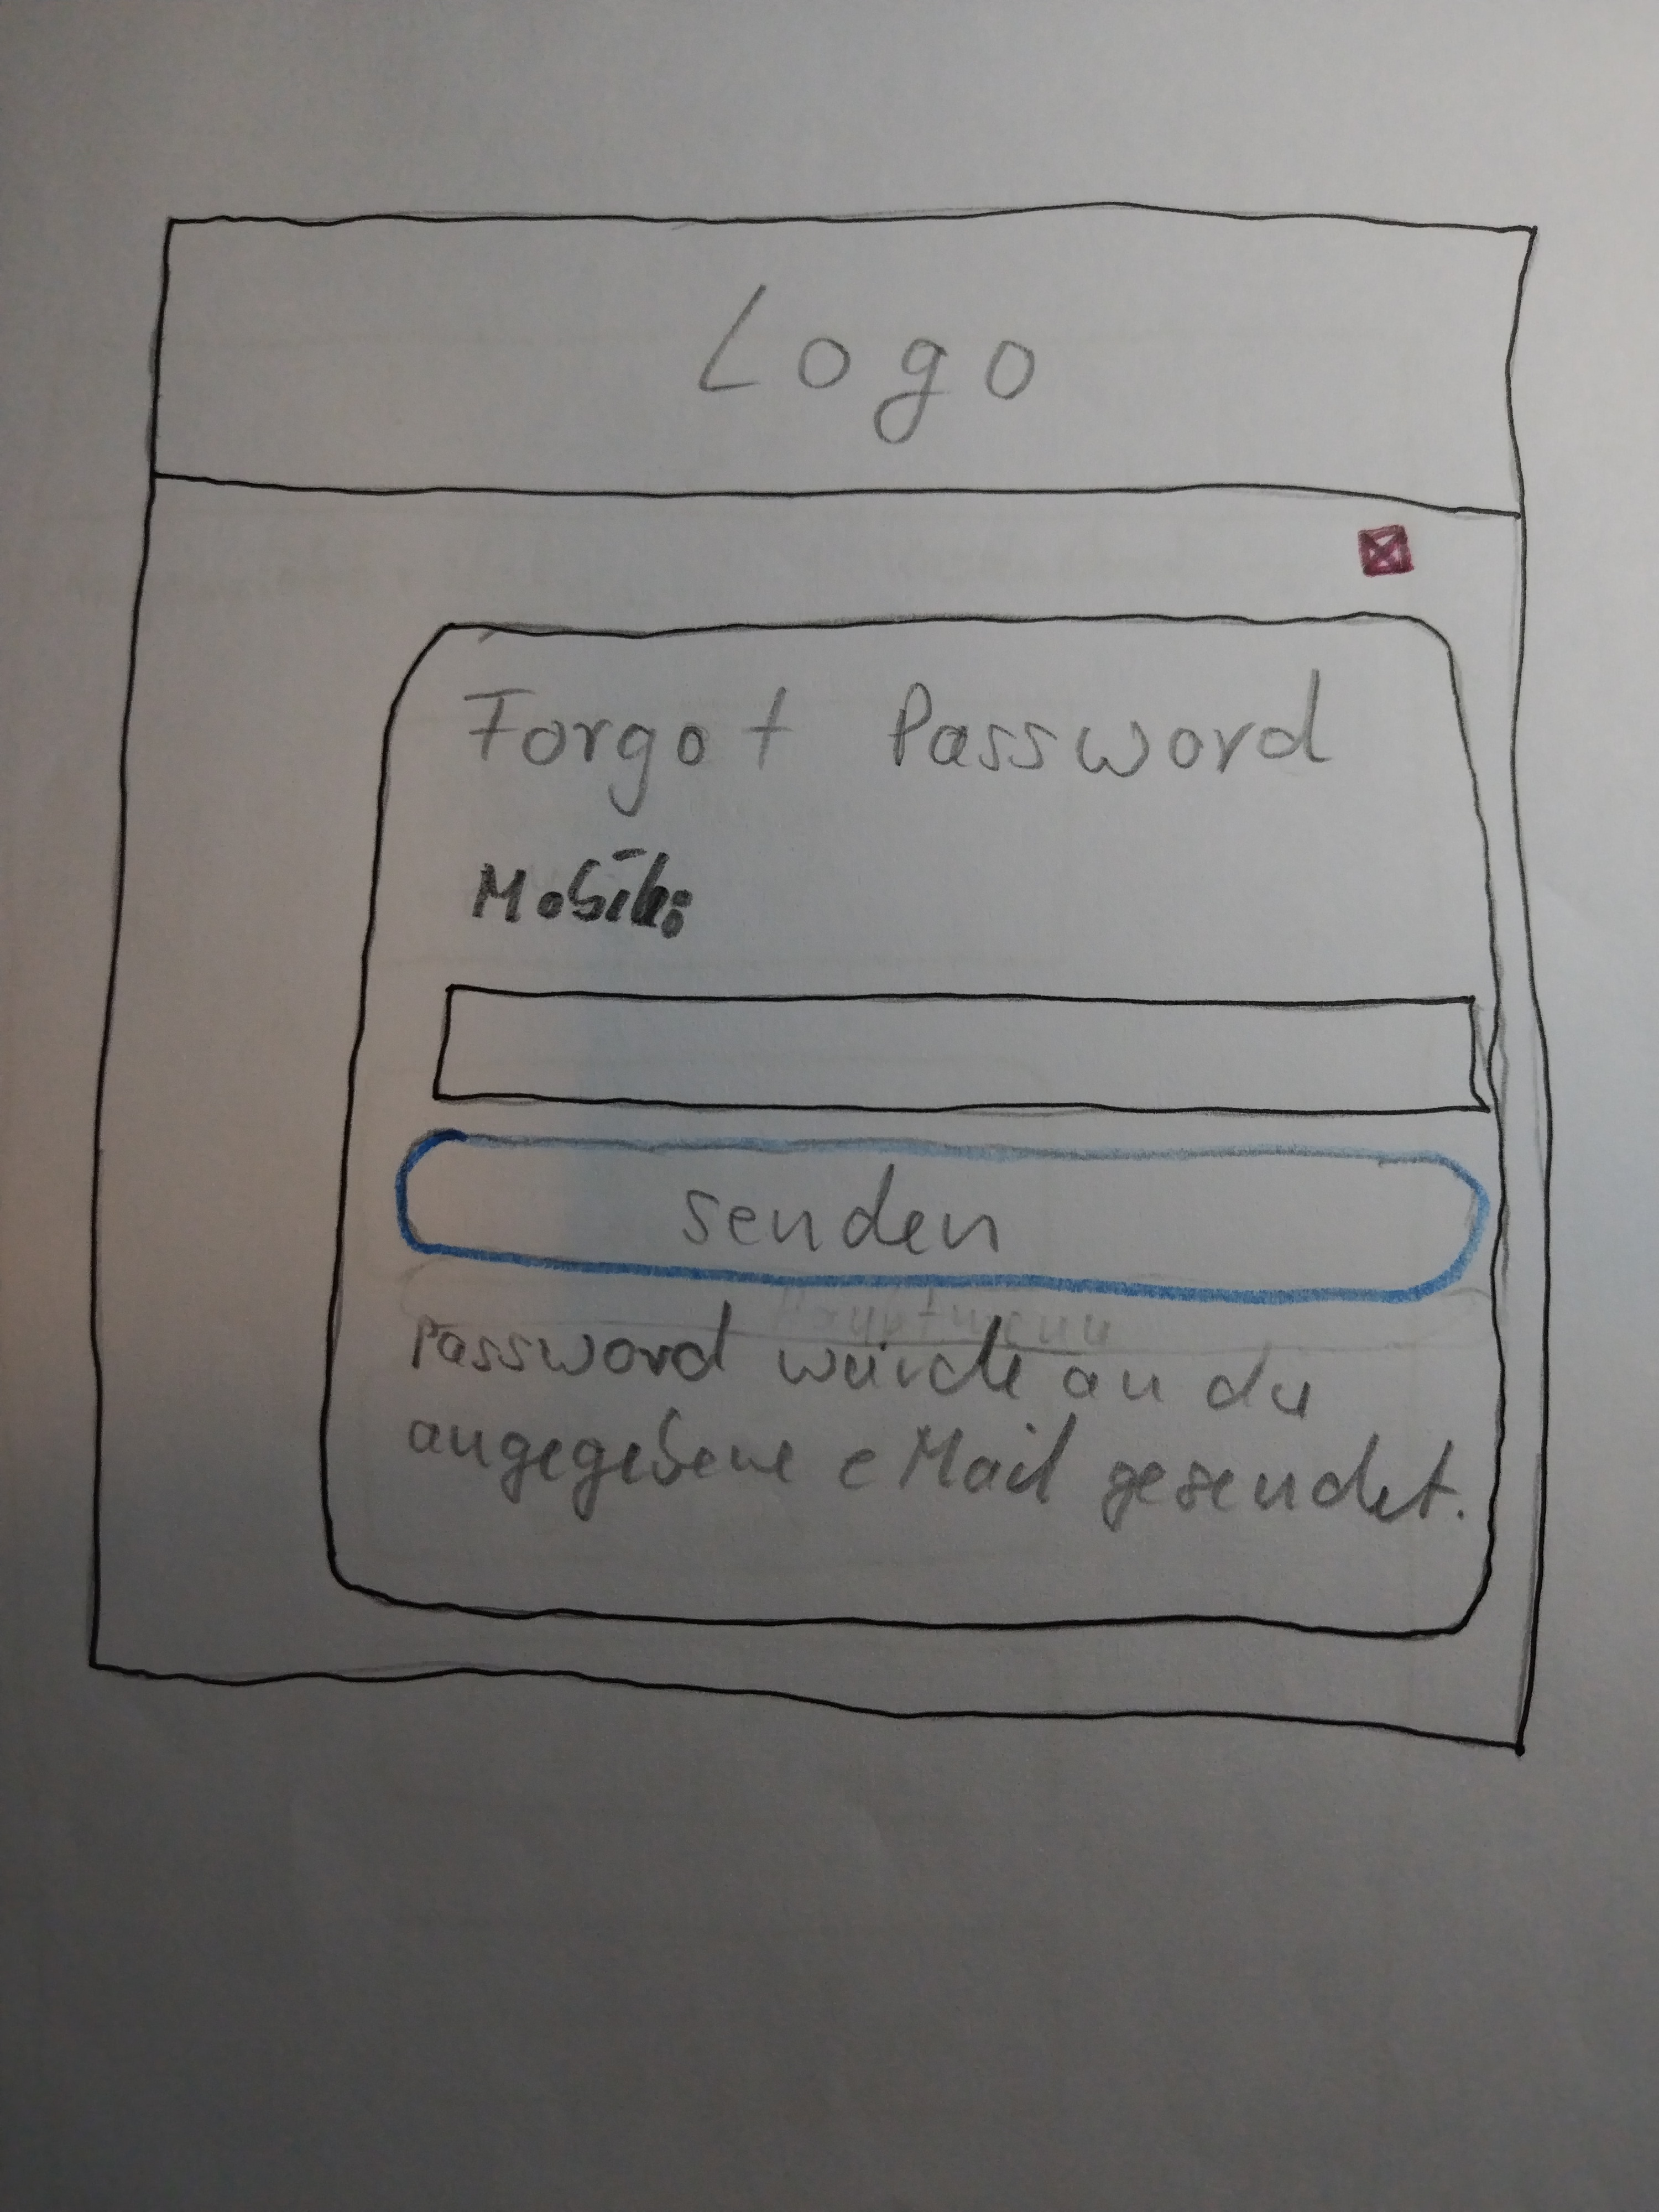 Logo
Forgot Password
Mobile:
senden
Hauptmenu
Password wurde an die
angegebene eMail gesendet.